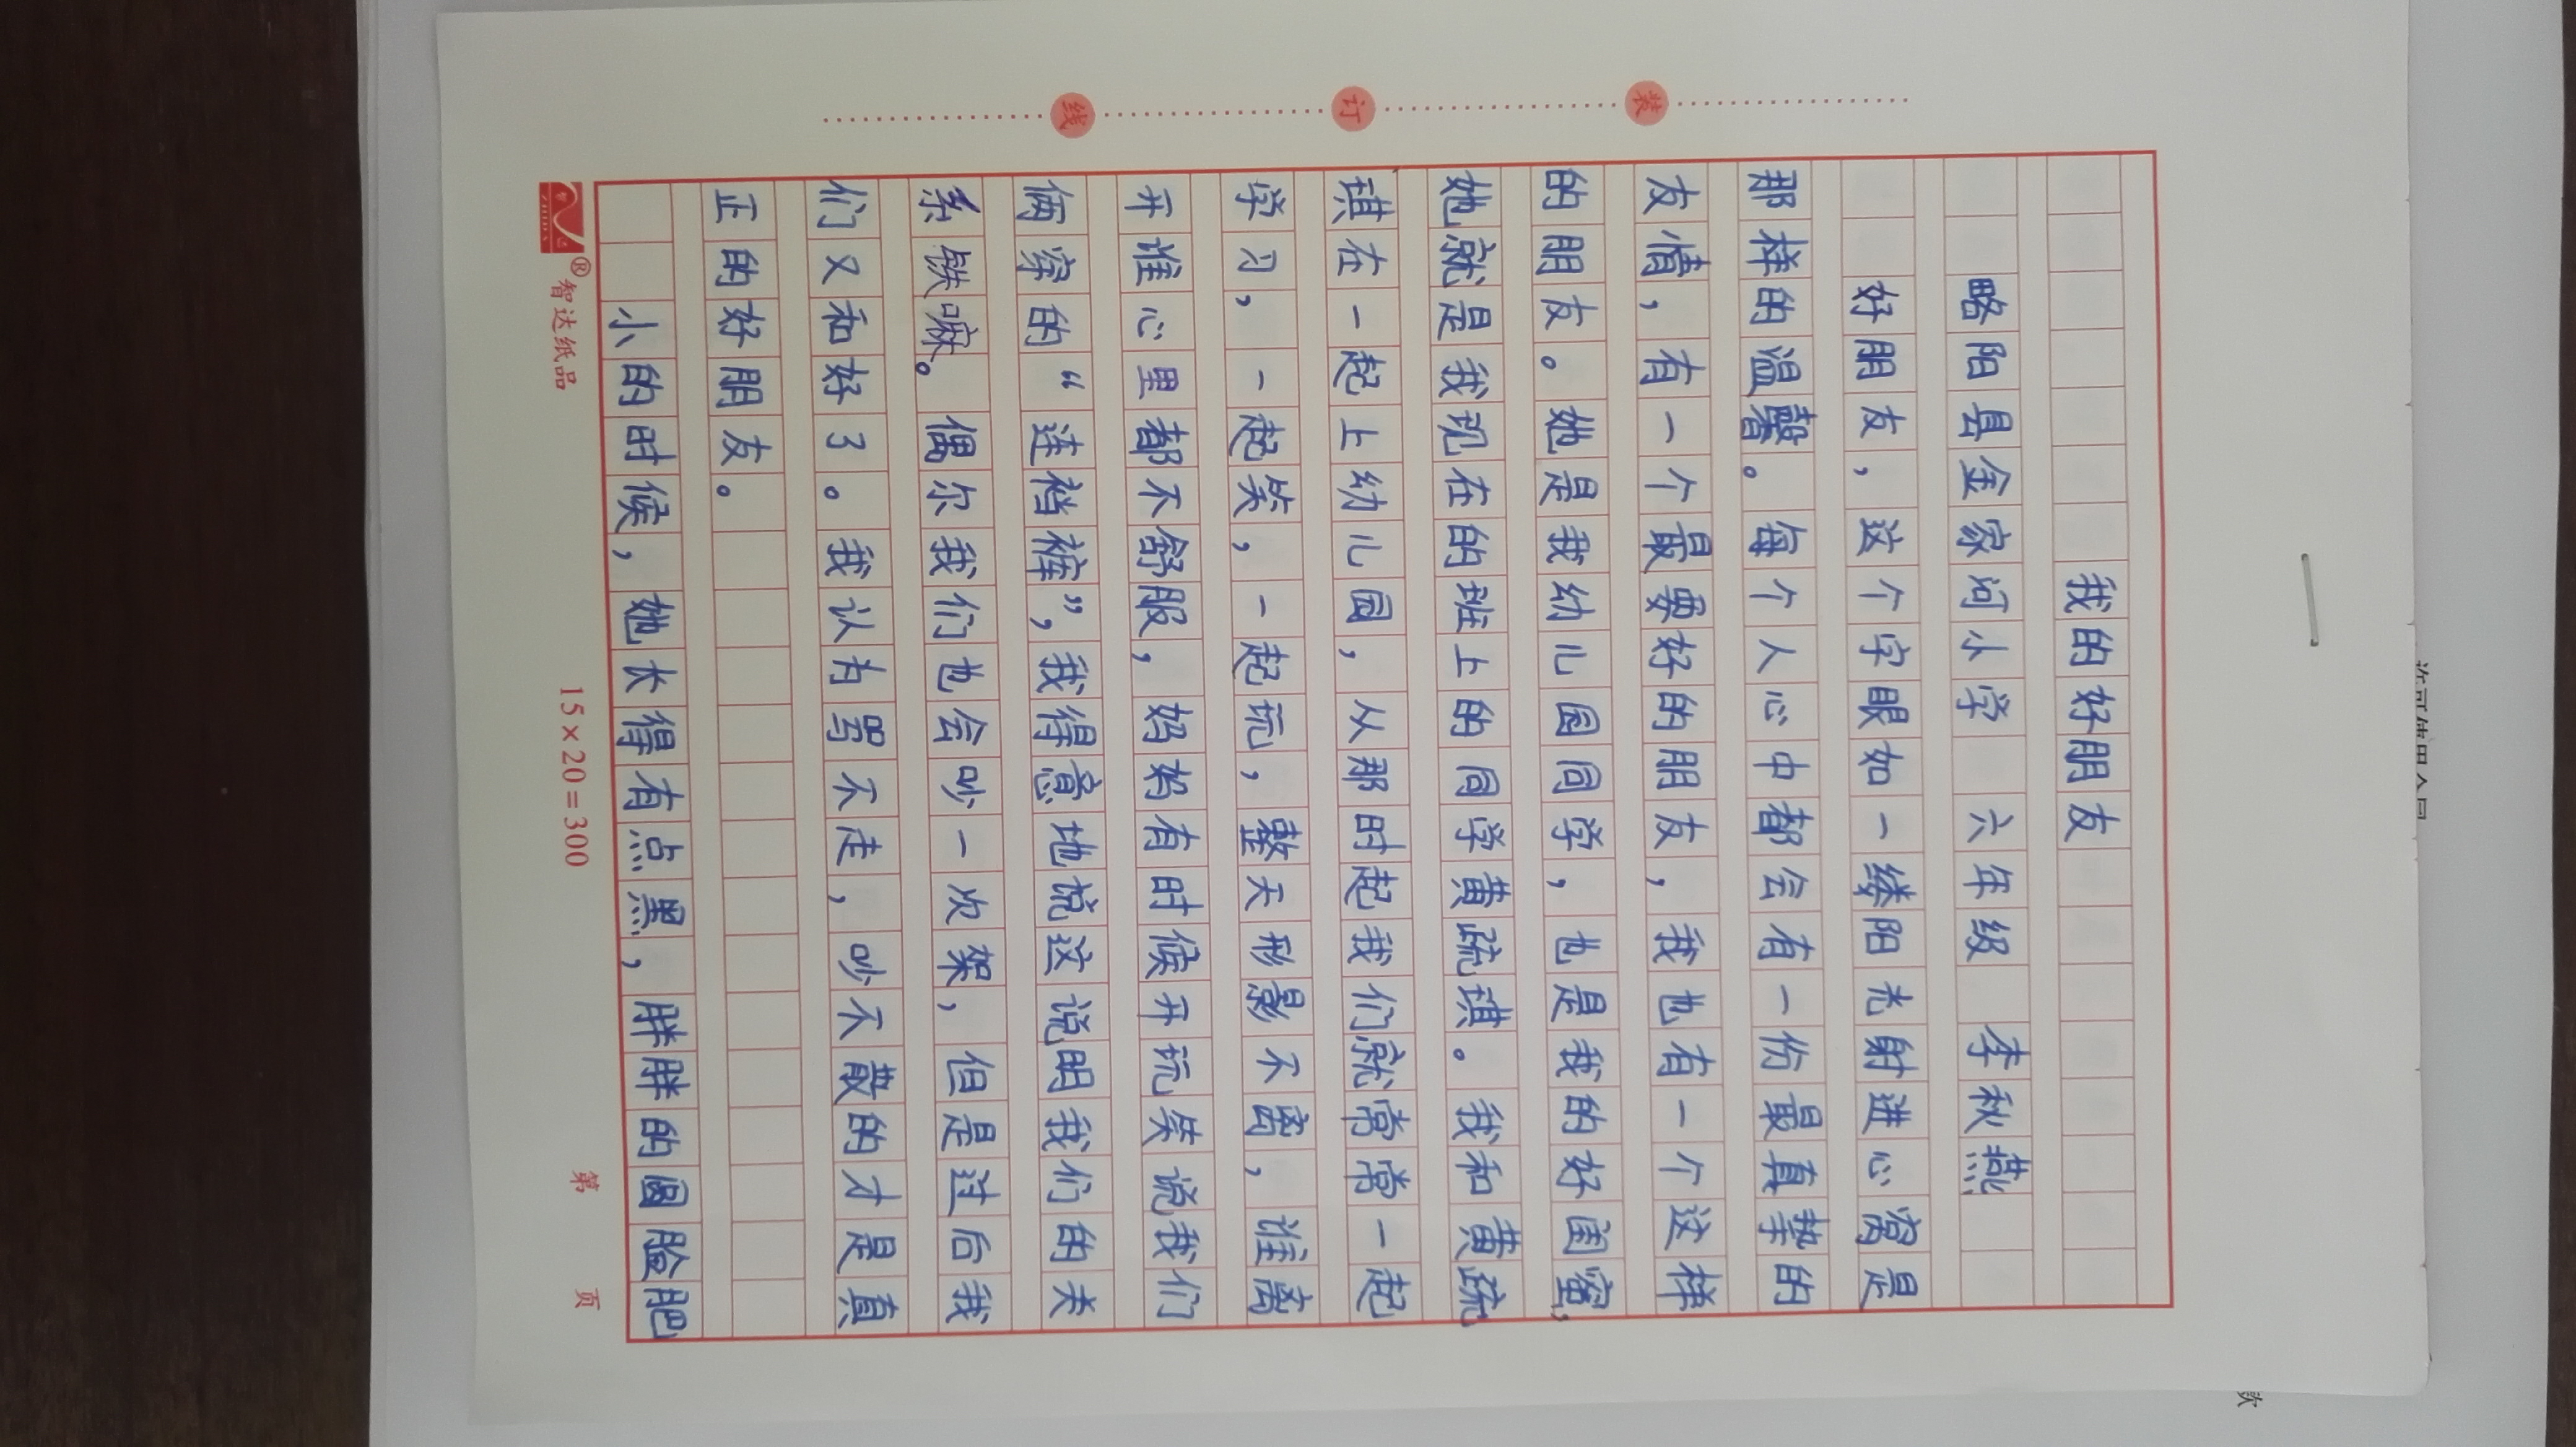 我的好朋友
略阳县金家河小学 六年级 李秋燕
好朋友，这个字眼如一缕阳光射进心窝是
那样的温馨。每个人心中都会有一份最真挚的
友情，有一个最要好的朋友，我也有一个这样
的朋友。她是我幼儿园同学，也是我的好闺蜜，
她就是我现在的班上的同学黄疏琪。我和黄疏
琪在一起上幼儿园，从那时起我们就常常一起
学习，一起笑，一起玩，整天形影不离，谁离
开谁心里都不舒服，妈妈有时候开玩笑说我们
俩穿的“连裆裤”，我得意地说这说明我们的关
系铁嘛。偶尔我们也会吵一次架，但是过后我
们又和好了。我认为骂不走，吵不散的才是真
正的好朋友。
小的时候，她长得有点黑，胖胖的圆脸肥
装 订 线
智达纸品
15×20=300
第 页